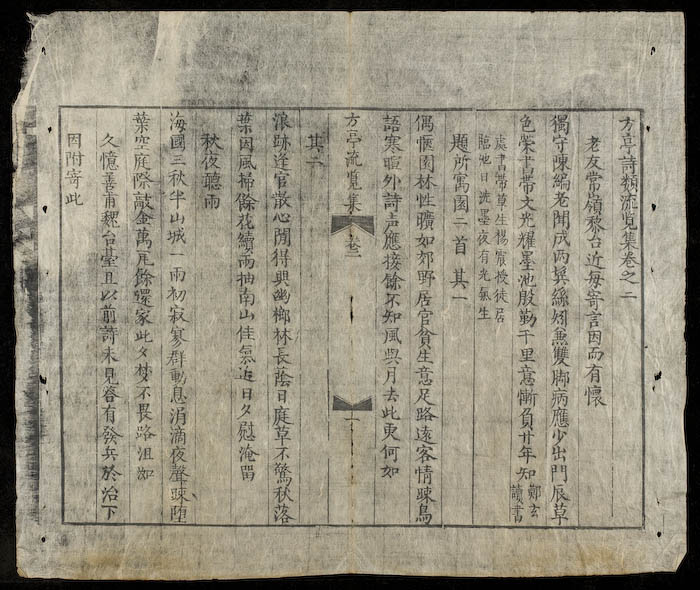 方亭詩類流覽集卷之二
老友常嶺黎台近每寄言因而有懷
獨守陳編老閒成两鬂絲矧兼雙脚病應少出門辰草
色荣書帶文光耀墨池殷勤千里意慚負廿年知鄭玄
讀書
處書帶草生楊賓授徒居
臨池日洗墨夜有光氣生
題所寓園二首 其一
偶愜園林性曠如郊野居官貧生意足路遠客情踈鳥
語寒暄外詩声應接餘不知風與月去此更何如
方亭流覧集 卷二 一
其二
浪跡逢官散心閒得興幽榔林長蔭日庭草不驚秋落
葉因風掃餘花續雨抽南山佳氣近日夕慰淹留
秋夜聽雨
海國三秋半山城一雨初寂寥群動息涓滴夜聲踈堕
葉空庭際敲金萬瓦餘還家此夕梦不畏路沮洳
久憶善甫魏台臺且以前詩未見答有發兵於治下
因附寄此